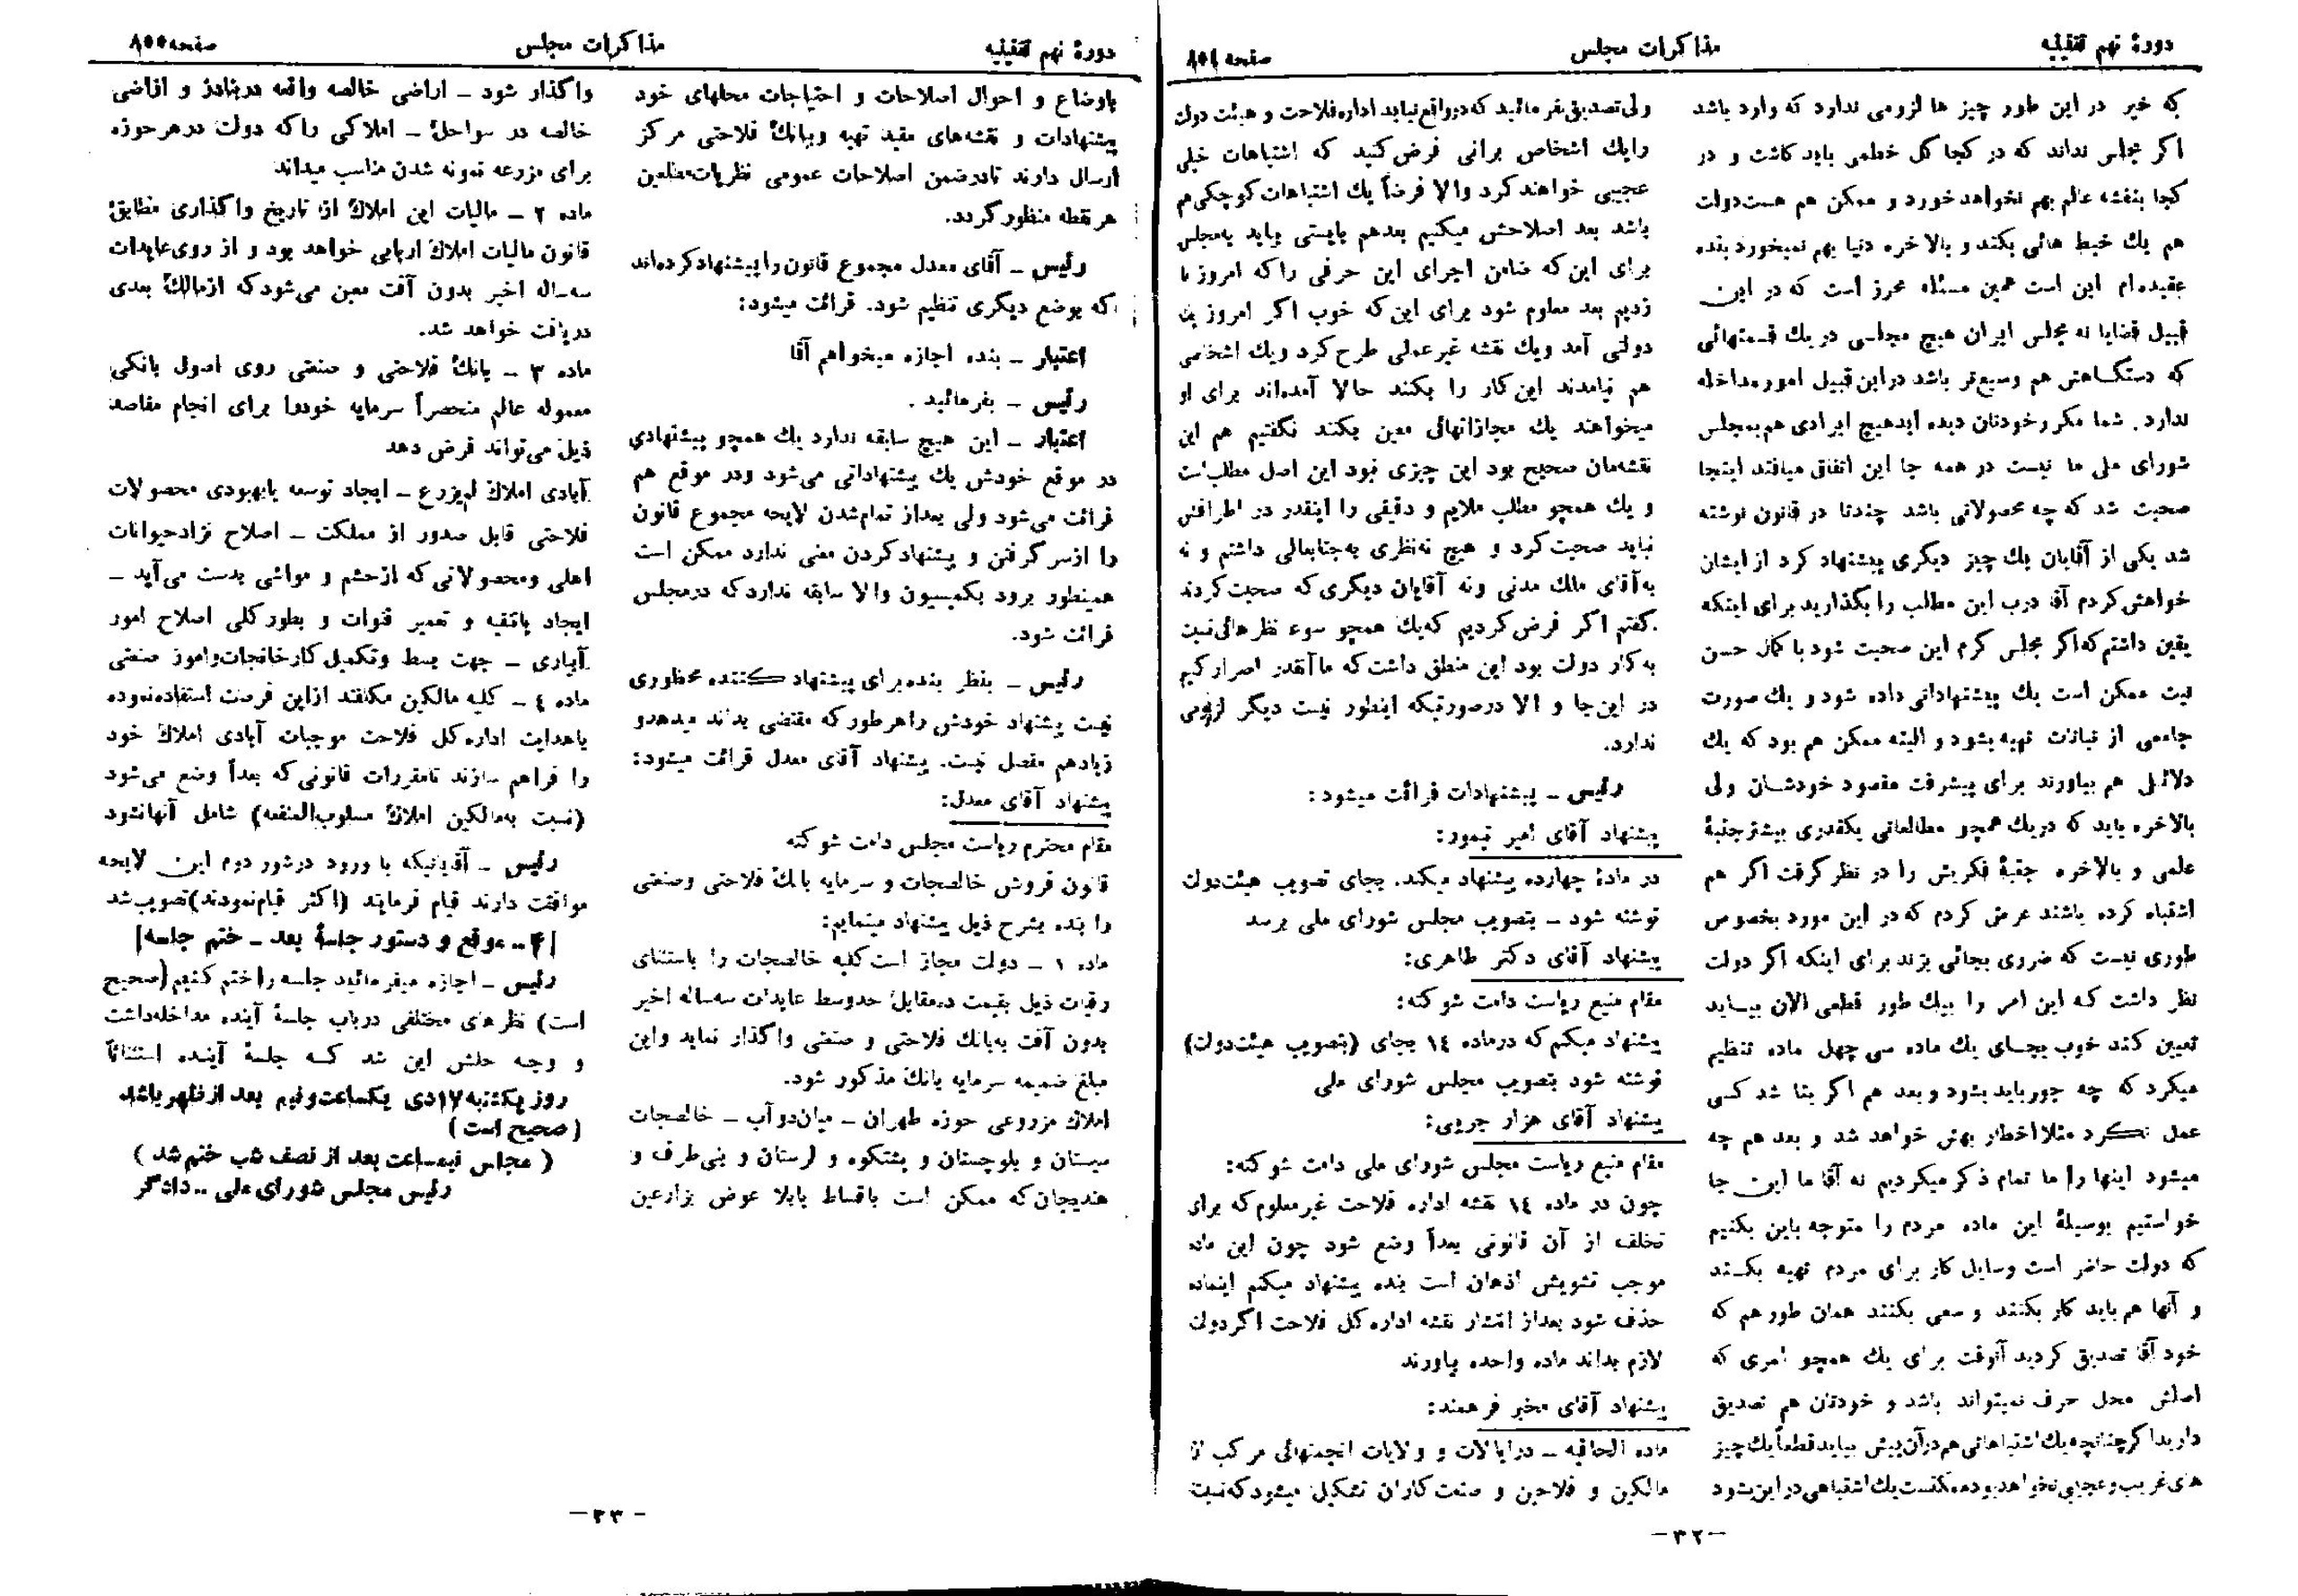 دورهٔ نهم تقنینیه
مذاکرات مجلس
صفحه
که خیر در این طور چیز ها لزومی ندارد که وارد باشد
اگر مجلس نداند که در کجا گل خطمی باید کاشت و در
کجا بنفشه عالم بهم نخواهد خورد و ممکن هم هست دولت
هم یك خبط هائی بکند و بالاخره دنیا بهم نمیخورد بنده
عقیده‌ام این است همین مسئله محرز است که در این
قبیل قضایا نه مجلس ایران هیچ مجلسی در یك قسمتهائی
که دستگاهش هم وسیع‌تر باشد در این قبیل امور مداخله
ندارد. شما مکرر خودتان دیده اید هیچ ایرادی هم بمجلس
شورای ملی ما نیست در همه جا این اتفاق میافتد اینجا
صحبت شد که چه محصولاتی باشد چندتا در قانون نوشته
شد یکی از آقایان یك چیز دیگری پیشنهاد کرد از ایشان
خواهش کردم آقا درب این مطالب را بگذارید برای اینکه
یقین داشتم که اگر مجلس گرم این صحبت شود با کمال حسن
نیت ممکن است یك پیشنهاداتی داده شود و یك صورت
جامعی از نباتات تهیه بشود و البته ممکن هم بود که یك
دلائلی هم بیاورند برای پیشرفت مقصود خودشان ولی
بالاخره باید که در یك همچو مطالعاتی یکقدری بیشتر جنبهٔ
علمی و بالاخره جنبهٔ فکریش را در نظر گرفت اگر هم
اشتباه کرده باشند عرض کردم که در این مورد بخصوص
طوری نیست که ضرری بجائی بزند برای اینکه اگر دولت
نظر داشت که این امر را بیك طور قطعی الان بیاید
تعیین کند خوب بجای یك ماده سی چهل ماده تنظیم
میکرد که چه جور باید بشود و بعد هم اگر بنا شد کسی
عمل نکرد مثلا اخطار بهش خواهد شد و بعد هم چه
میشود اینها را ما تمام ذکر میکردیم نه آقا ما این جا
خواستیم بوسیلهٔ این ماده مردم را متوجه باین بکنیم
که دولت حاضر است وسایل کار برای مردم تهیه بکند
و آنها هم باید کار بکنند و سعی بکنند همان طور هم که
خود آقا تصدیق کردید آنوقت برای یك همچو امری که
اصلش محل حرف نمیتواند باشد و خودتان هم تصدیق
دارید اگر چنانچه یك اشتباهاتی هم در آن پیش بیاید قطعاً یك چیز
های غریب و عجیبی نخواهد بود ممکنست یك اشتباهی در این بشود
ولی تصدیق بفرمائید که در واقع نباید اداره فلاحت و هیئت دولت
را یك اشخاص برانی فرض کنید که اشتباهات خیلی
عجیبی خواهند کرد والا فرضاً یك اشتباهات کوچکی هم
باشد بعد اصلاحش میکنیم بعدهم بایستی بیاید بمجلس
برای این که ضامن اجرای این حرفی را که امروز ما
زدیم بعد معلوم شود برای این که خوب اگر امروز یك
دولتی آمد و یك نقشه غیرعملی طرح کرد و یك اشخاصی
هم نیامدند این کار را بکنند حالا آمده‌اند برای او
میخواهند یك مجازاتهائی معین بکنند نگفتیم هم این
نقشه‌مان صحیح بود این چیزی نبود این اصل مطلب است
و یك همچو مطلب ملایم و دقیقی را اینقدر در اطرافش
نباید صحبت کرد و هیچ نه نظری به جنابعالی داشتم و نه
به آقای ملك مدنی و نه آقایان دیگری که صحبت کردند
گفتم اگر فرض کردیم که یك همچو سوء نظر هائی نسبت
به کار دولت بود این منطق داشت که ما آنقدر اصرار کنیم
در این جا و الا در صورتیکه اینطور نیست دیگر لزومی
ندارد.
رئیس ـ پیشنهادات قرائت میشود:
پیشنهاد آقای امیر تیمور:
در مادهٔ چهارده پیشنهاد میکند. بجای تصویب هیئت دولت
نوشته شود ـ بتصویب مجلس شورای ملی برسد
پیشنهاد آقای دکتر طاهری:
مقام منیع ریاست دامت شوکته:
پیشنهاد میکنم که در ماده ١٤ بجای (بتصویب هیئت دولت)
نوشته شود بتصویب مجلس شورای ملی
پیشنهاد آقای هزار جریبی:
مقام منیع ریاست مجلس شورای ملی دامت شوکته:
چون در ماده ١٤ نقشه اداره فلاحت غیر معلوم که برای
تخلف از آن قانونی بعداً وضع شود چون این ماده
موجب تشویش اذهان است بنده پیشنهاد میکنم اینماده
حذف شود بعد از انتشار نقشه اداره کل فلاحت اگر دولت
لازم بداند ماده واحده بیاورند
پیشنهاد آقای مخبر فرهمند:
ماده الحاقیه ـ در ایالات و ولایات انجمنهائی مرکب از
مالکین و فلاحین و صنعت کاران تشکیل میشود که نسبت
ـ ٣٢ ـ
دورهٔ نهم تقنینیه
مذاکرات مجلس
صفحه
باوضاع و احوال اصلاحات و احتیاجات محلهای خود
پیشنهادات و نقشه‌های مفید تهیه و ببانك فلاحتی مرکز
ارسال دارند تا در ضمن اصلاحات عمومی نظریات مطلعین
هر نقطه منظور گردد.
رئیس ـ آقای معدل مجموع قانون را پیشنهاد کرده‌اند
که بوضع دیگری تنظیم شود. قرائت میشود:
اعتبار ـ بنده اجازه میخواهم آقا
رئیس ـ بفرمائید.
اعتبار ـ این هیچ سابقه ندارد یك همچو پیشنهادی
در موقع خودش یك پیشنهاداتی می‌شود و در موقع هم
قرائت می‌شود ولی بعداز تمام شدن لایحه مجموع قانون
را از سر گرفتن و پیشنهاد کردن معنی ندارد ممکن است
همینطور برود بکمیسیون والا سابقه ندارد که در مجلس
قرائت شود.
رئیس ـ بنظر بنده برای پیشنهاد کننده محظوری
نیست پیشنهاد خودش را هر طور که مقتضی بداند میدهد و
زیادهم مفصل نیست. پیشنهاد آقای معدل قرائت میشود:
پیشنهاد آقای معدل:
مقام محترم ریاست مجلس دامت شوکته
قانون فروش خالصجات و سرمایه بانك فلاحتی و صنعتی
را بنده بشرح ذیل پیشنهاد مینمایم:
ماده ١ ـ دولت مجاز است کلیه خالصجات را باستثنای
رقبات ذیل بقیمت در مقابل حد وسط عایدات سه ساله اخیر
بدون آفت به بانك فلاحتی و صنعتی واگذار نماید و این
مبلغ ضمیمه سرمایه بانك مذکور شود.
املاك مزروعی حوزه طهران ـ میان دو آب ـ خالصجات
سیستان و بلوچستان و پشتکوه و لرستان و بنی طرف و
هندیجان که ممکن است باقساط یا بلا عوض بزارعین
واگذار شود ـ اراضی خالصه واقعه در بنادر و اراضی
خالصه در سواحل ـ املاکی را که دولت در هر حوزه
برای مزرعه نمونه شدن مناسب میداند
ماده ٢ ـ مالیات این املاك از تاریخ واگذاری مطابق
قانون مالیات املاك اربابی خواهد بود و از روی عایدات
سه ساله اخیر بدون آفت معین می‌شود که از مالك بعدی
دریافت خواهد شد.
ماده ٣ ـ بانك فلاحتی و صنعتی روی اصول بانکی
معموله عالم منحصراً سرمایه خود را برای انجام مقاصد
ذیل می‌تواند قرض دهد
آبادی املاك لم‌یزرع ـ ایجاد توسعه یا بهبودی محصولات
فلاحتی قابل صدور از مملکت ـ اصلاح نژاد حیوانات
اهلی و محصولاتی که از حشم و مواشی بدست می‌آید ـ
ایجاد یا تنقیه و تعمیر قنوات و بطور کلی اصلاح امور
آبیاری ـ جهت بسط و تکمیل کارخانجات و امور صنعتی
ماده ٤ ـ کلیه مالکین مکلفند از این فرصت استفاده نموده
با هدایت اداره کل فلاحت موجبات آبادی املاك خود
را فراهم سازند تا مقررات قانونی که بعداً وضع می‌شود
(نسبت به مالکین املاك مسلوب المنفعه) شامل آنها نشود
رئیس ـ آقایانیکه با ورود در شور دوم این لایحه
موافقت دارند قیام فرمایند (اکثر قیام نمودند) تصویب شد
[۴ ـ موقع و دستور جلسهٔ بعد ـ ختم جلسه]
رئیس ـ اجازه میفرمائید جلسه را ختم کنیم (صحیح
است) نظر های مختلفی در باب جلسهٔ آینده مداخله داشت
و وجه حلش این شد که جلسهٔ آینده استثنائاً
روز یکشنبه ۱۷ دی یکساعت و نیم بعد از ظهر باشد
(صحیح است)
(مجلس نیمساعت بعد از نصف شب ختم شد)
رئیس مجلس شورای ملی ـ دادگر
ـ ٣٣ ـ